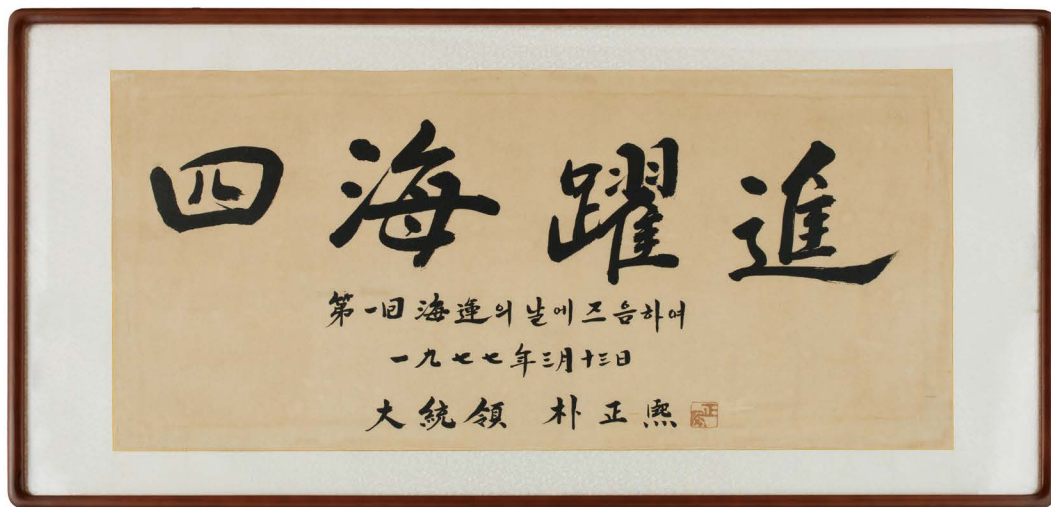 四海躍進
第一回 海運의 날에 즈음하여
一九七七年 三月 十三日
大統領 朴正熙